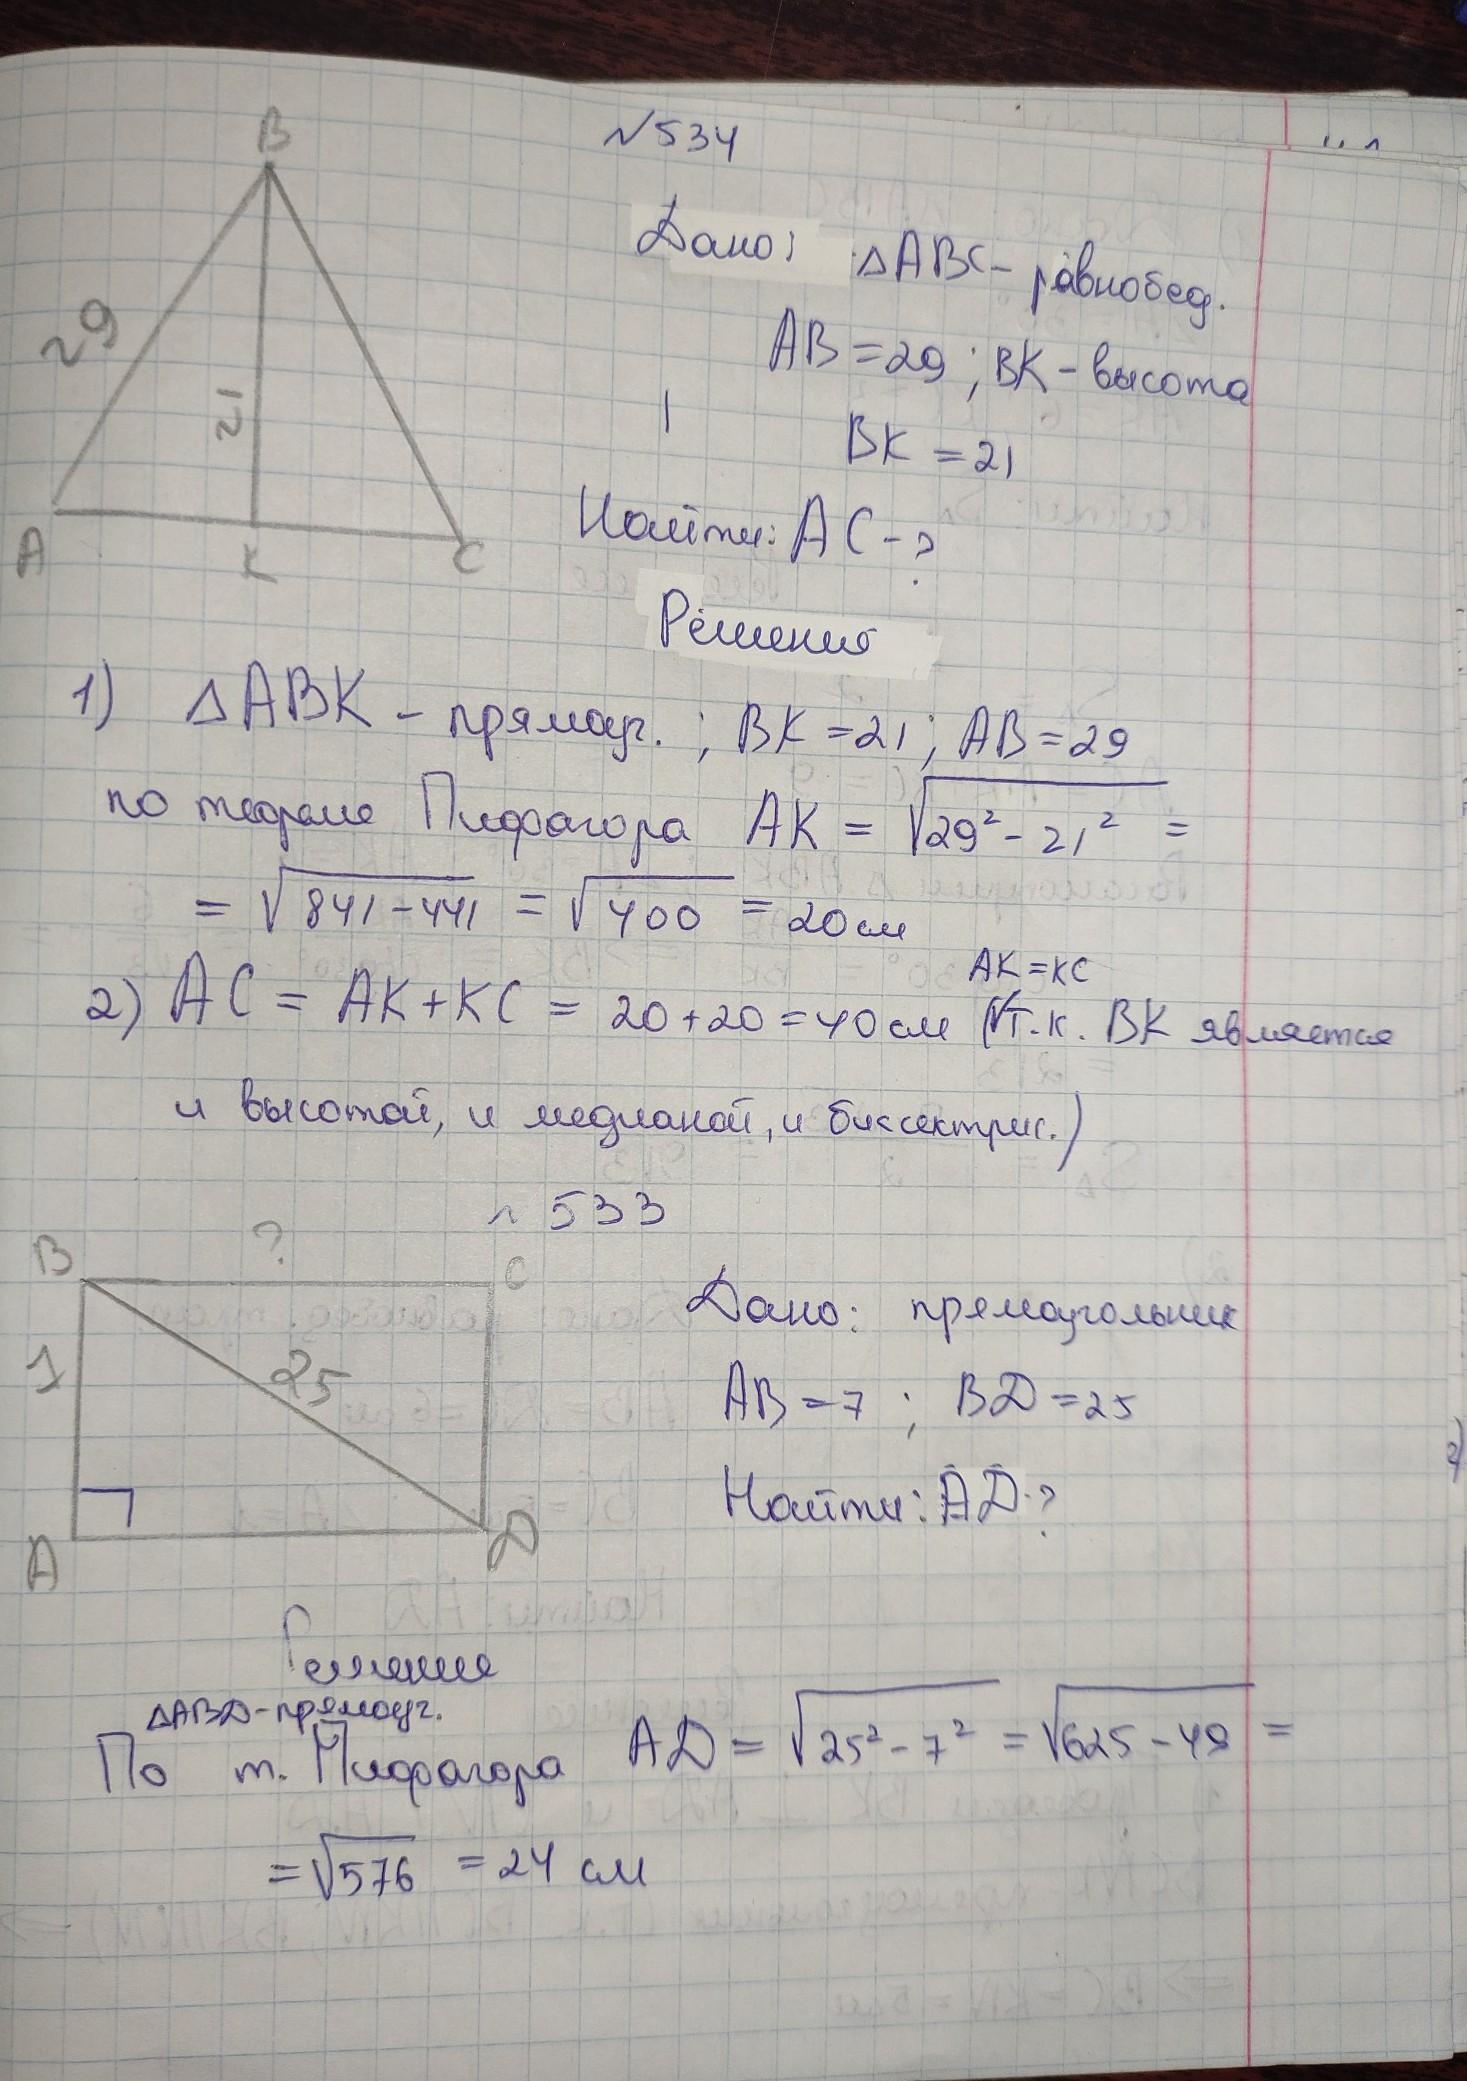 №534
B
29
21
A
K
C
Дано: △ABC – равнобед.
AB = 29 ; BK – высота
BK = 21
Найти: AC - ?
Решения
1) △ABK – прямоуг. ; BK = 21 ; AB = 29
по теореме Пифагора AK = √29² - 21² =
= √841 - 441 = √400 = 20 см
AK = KC
2) AC = AK + KC = 20 + 20 = 40 см (√т.к. BK является
и высотой, и медианой, и биссектрис.)
№ 533
B
?
C
7
25
A
D
Дано: прямоугольник
AB = 7 ; BD = 25
Найти: AD - ?
Решение
△ABD – прямоуг.
По т. Пифагора AD = √25² - 7² = √625 - 49 =
= √576 = 24 см